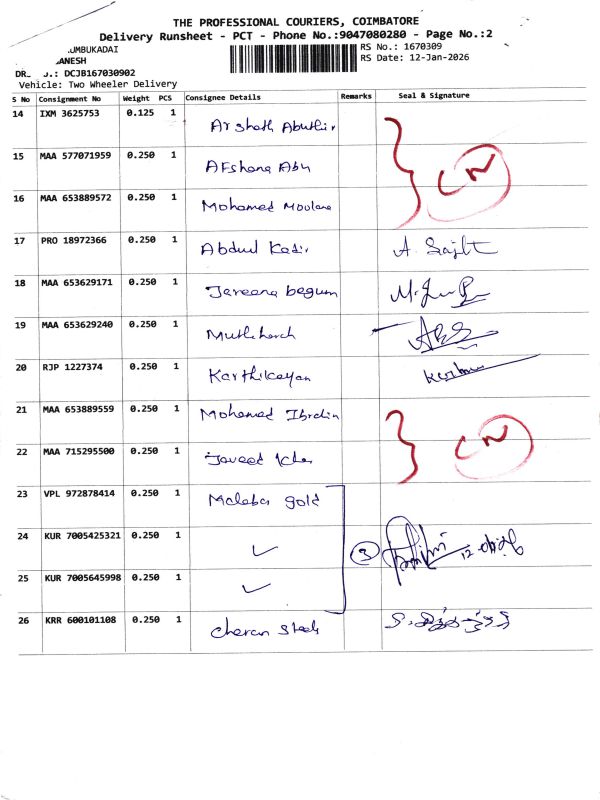 THE PROFESSIONAL COURIERS, COIMBATORE
Delivery Runsheet - PCT - Phone No.:9047080280 - Page No.:2
UMBUKADAI
RS No.: 1670309
ANESH
RS Date: 12-Jan-2026
DR_ J.: DCJB167030902
Vehicle: Two Wheeler Delivery
S No Consignment No Weight PCS Consignee Details Remarks Seal & Signature
14 IXM 3625753 0.125 1 Arshath
15 MAA 577071959 0.250 1 Afshana Abu
16 MAA 653889572 0.250 1 Mohamed Moulana
CN
17 PRO 18972366 0.250 1 Abdul Kadir A. Sajit
18 MAA 653629171 0.250 1 Jareena begum
19 MAA 653629240 0.250 1
20 RJP 1227374 0.250 1 Karthikeyan
21 MAA 653889559 0.250 1 Mohamed Ibrahim
22 MAA 715295500 0.250 1 Javeed
CN
23 VPL 972878414 0.250 1 Malabar gold
24 KUR 7005425321 0.250 1 3
25 KUR 7005645998 0.250 1
26 KRR 600101108 0.250 1 Cheran Steels